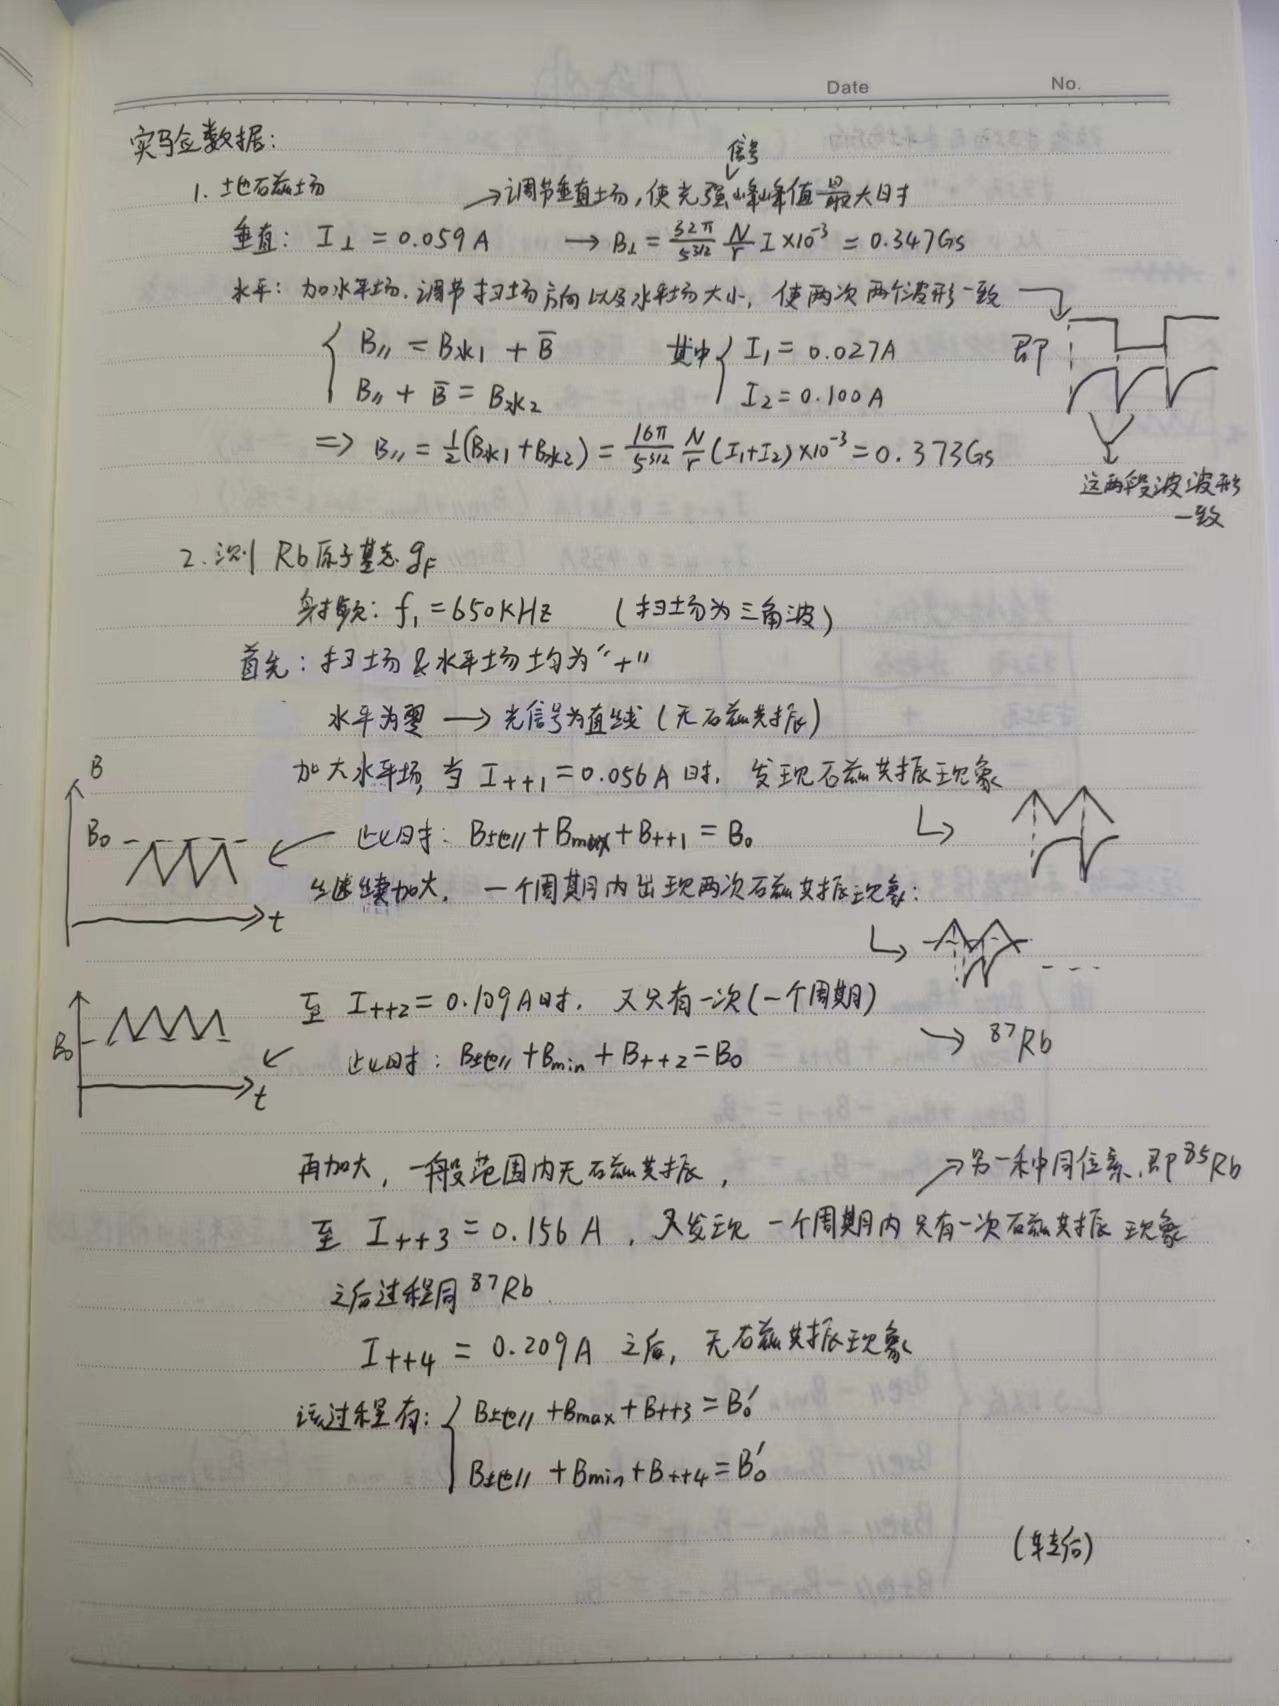 Date No.
实验数据:
1. 地磁场
信号
→调节垂直场,使光强峰峰值最大时
垂直: I⊥ = 0.059A → B⊥ = 32π/5^3/2 N/r I×10⁻³ = 0.347Gs
水平: 加水平场.调节扫场方向以及水平场大小,使两次两个波形一致
B∥ = B水1 + B̄ 其中 I₁ = 0.027A 即
B∥ + B̄ = B水2 I₂ = 0.100A
=> B∥ = ½(B水1+B水2) = 16π/5^3/2 N/r (I₁+I₂)×10⁻³ = 0.373Gs
这两段波波形
一致
2. 测 Rb原子基态 gF
射频: f₁ = 650KHz (扫场为三角波)
首先: 扫场&水平场均为"+"
水平为零 → 光信号为直线(无磁共振)
加大水平场,当 I++1 = 0.056A 时, 发现磁共振现象
B
B₀
此时: B地∥ + Bmax + B++1 = B₀
继续加大, 一个周期内出现两次磁共振现象:
t
至 I++2 = 0.109A时, 又只有一次(一个周期)
→ ⁸⁷Rb
B₀
此时: B地∥ + Bmin + B++2 = B₀
t
再加大, 一般范围内无磁共振, →另一种同位素,即⁸⁵Rb
至 I++3 = 0.156A, 又发现 一个周期内只有一次磁共振现象
之后过程同 ⁸⁷Rb
I++4 = 0.209A 之后, 无磁共振现象
该过程有: B地∥ + Bmax + B++3 = B₀′
B地∥ + Bmin + B++4 = B₀′
(转后)